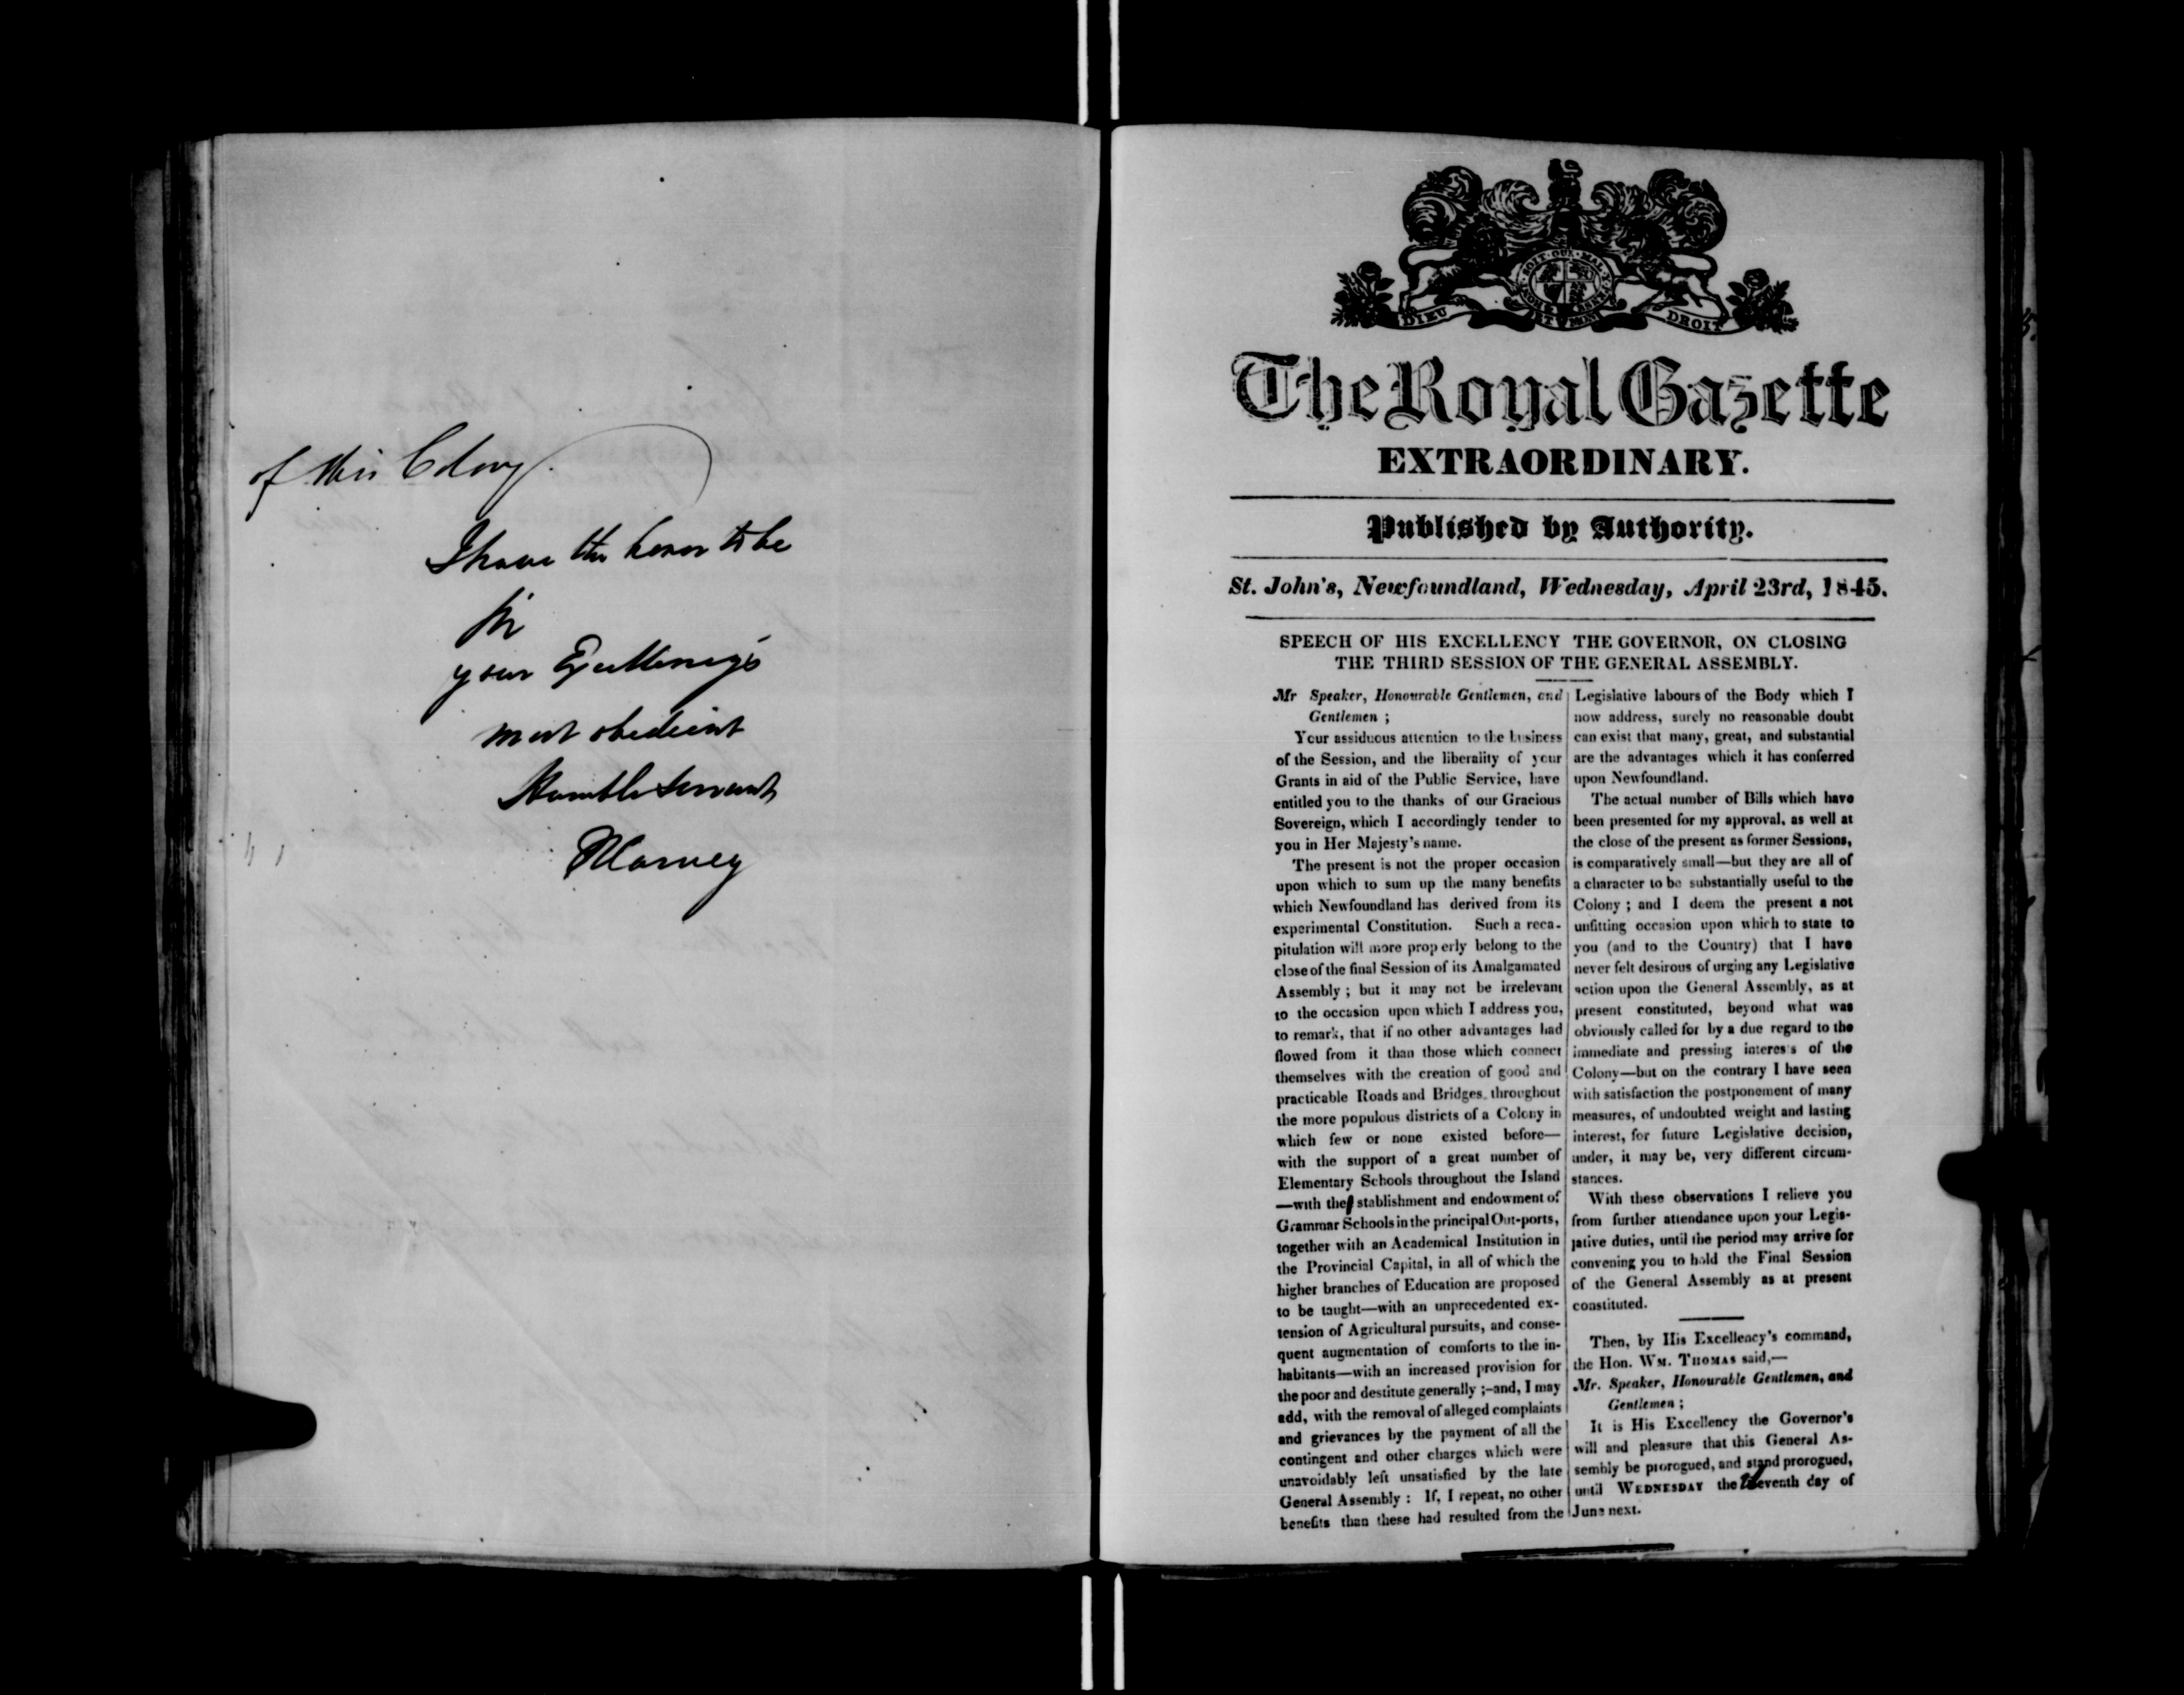 of this Colony.
I have the honor to be
Sir
your Excellency's
most obedient
Humble Servant
Harvey
HONI SOIT QUI MAL Y PENSE
DIEU ET MON DROIT
The Royal Gazette
EXTRAORDINARY.
Published by Authority.
St. John's, Newfoundland, Wednesday, April 23rd, 1845.
SPEECH OF HIS EXCELLENCY THE GOVERNOR, ON CLOSING
THE THIRD SESSION OF THE GENERAL ASSEMBLY.
Mr Speaker, Honourable Gentlemen, and
Gentlemen ;
Your assiduous attention to the business
of the Session, and the liberality of your
Grants in aid of the Public Service, have
entitled you to the thanks of our Gracious
Sovereign, which I accordingly tender to
you in Her Majesty's name.
The present is not the proper occasion
upon which to sum up the many benefits
which Newfoundland has derived from its
experimental Constitution. Such a reca-
pitulation will more properly belong to the
close of the final Session of its Amalgamated
Assembly ; but it may not be irrelevant
to the occasion upon which I address you,
to remark, that if no other advantages had
flowed from it than those which connect
themselves with the creation of good and
practicable Roads and Bridges throughout
the more populous districts of a Colony in
which few or none existed before—
with the support of a great number of
Elementary Schools throughout the Island
—with the stablishment and endowment of
Grammar Schools in the principal Out-ports,
together with an Academical Institution in
the Provincial Capital, in all of which the
higher branches of Education are proposed
to be taught—with an unprecedented ex-
tension of Agricultural pursuits, and conse-
quent augmentation of comforts to the in-
habitants—with an increased provision for
the poor and destitute generally ;–and, I may
add, with the removal of alleged complaints
and grievances by the payment of all the
contingent and other charges which were
unavoidably left unsatisfied by the late
General Assembly : If, I repeat, no other
benefits than these had resulted from the
Legislative labours of the Body which I
now address, surely no reasonable doubt
can exist that many, great, and substantial
are the advantages which it has conferred
upon Newfoundland.
The actual number of Bills which have
been presented for my approval, as well at
the close of the present as former Sessions,
is comparatively small—but they are all of
a character to be substantially useful to the
Colony ; and I deem the present a not
unfitting occasion upon which to state to
you (and to the Country) that I have
never felt desirous of urging any Legislative
action upon the General Assembly, as at
present constituted, beyond what was
obviously called for by a due regard to the
immediate and pressing interes s of the
Colony—but on the contrary I have seen
with satisfaction the postponement of many
measures, of undoubted weight and lasting
interest, for future Legislative decision,
under, it may be, very different circum-
stances.
With these observations I relieve you
from further attendance upon your Legis-
lative duties, until the period may arrive for
convening you to hold the Final Session
of the General Assembly as at present
constituted.
Then, by His Excellency's command,
the Hon. WM. THOMAS said,—
Mr. Speaker, Honourable Gentlemen, and
Gentlemen ;
It is His Excellency the Governor's
will and pleasure that this General As-
sembly be prorogued, and stand prorogued,
until WEDNESDAY the eleventh day of
June next.